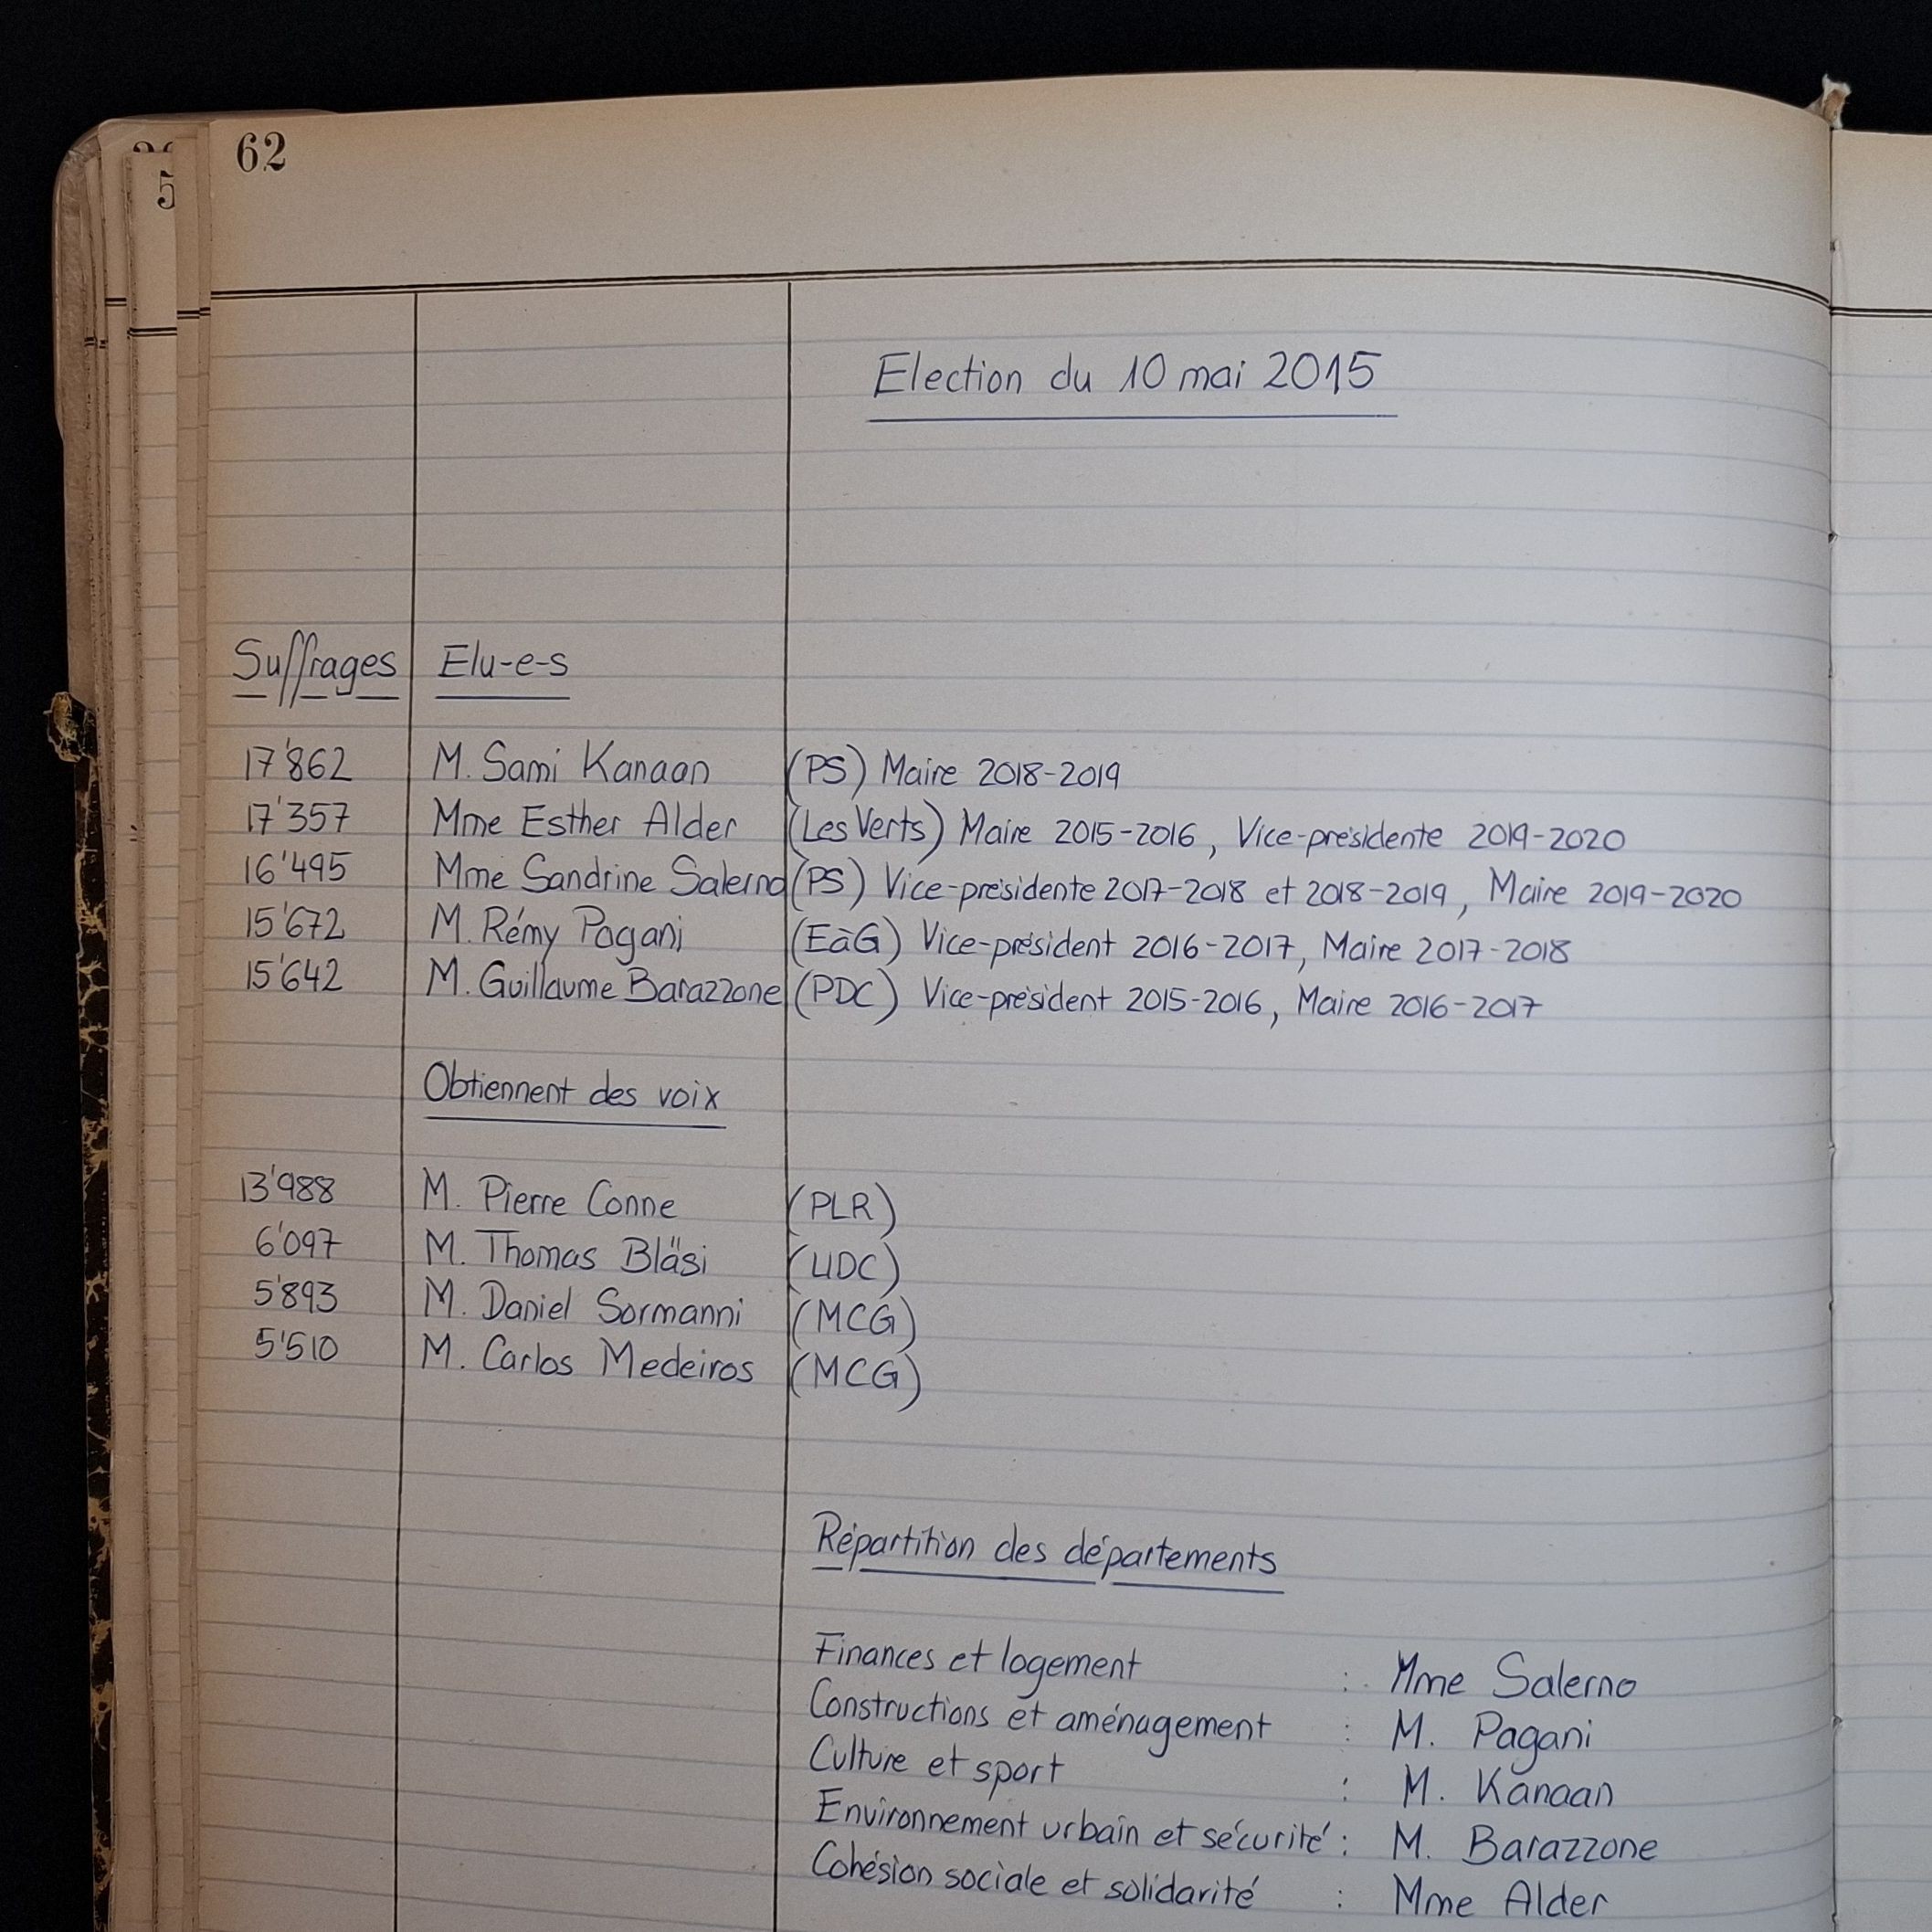 62
5
Election du 10 mai 2015
Suffrages Elu-e-s
17'862 M. Sami Kanaan (PS) Maire 2018-2019
17'357 Mme Esther Alder (Les Verts) Maire 2015-2016, Vice-présidente 2019-2020
16'495 Mme Sandrine Salerno (PS) Vice-présidente 2017-2018 et 2018-2019, Maire 2019-2020
15'672 M. Rémy Pagani (EàG) Vice-président 2016-2017, Maire 2017-2018
15'642 M. Guillaume Barazzone (PDC) Vice-président 2015-2016, Maire 2016-2017
Obtiennent des voix
13'988 M. Pierre Conne (PLR)
6'097 M. Thomas Bläsi (UDC)
5'893 M. Daniel Sormanni (MCG)
5'510 M. Carlos Medeiros (MCG)
Répartition des départements
Finances et logement : Mme Salerno
Constructions et aménagement : M. Pagani
Culture et sport : M. Kanaan
Environnement urbain et sécurité : M. Barazzone
Cohésion sociale et solidarité : Mme Alder